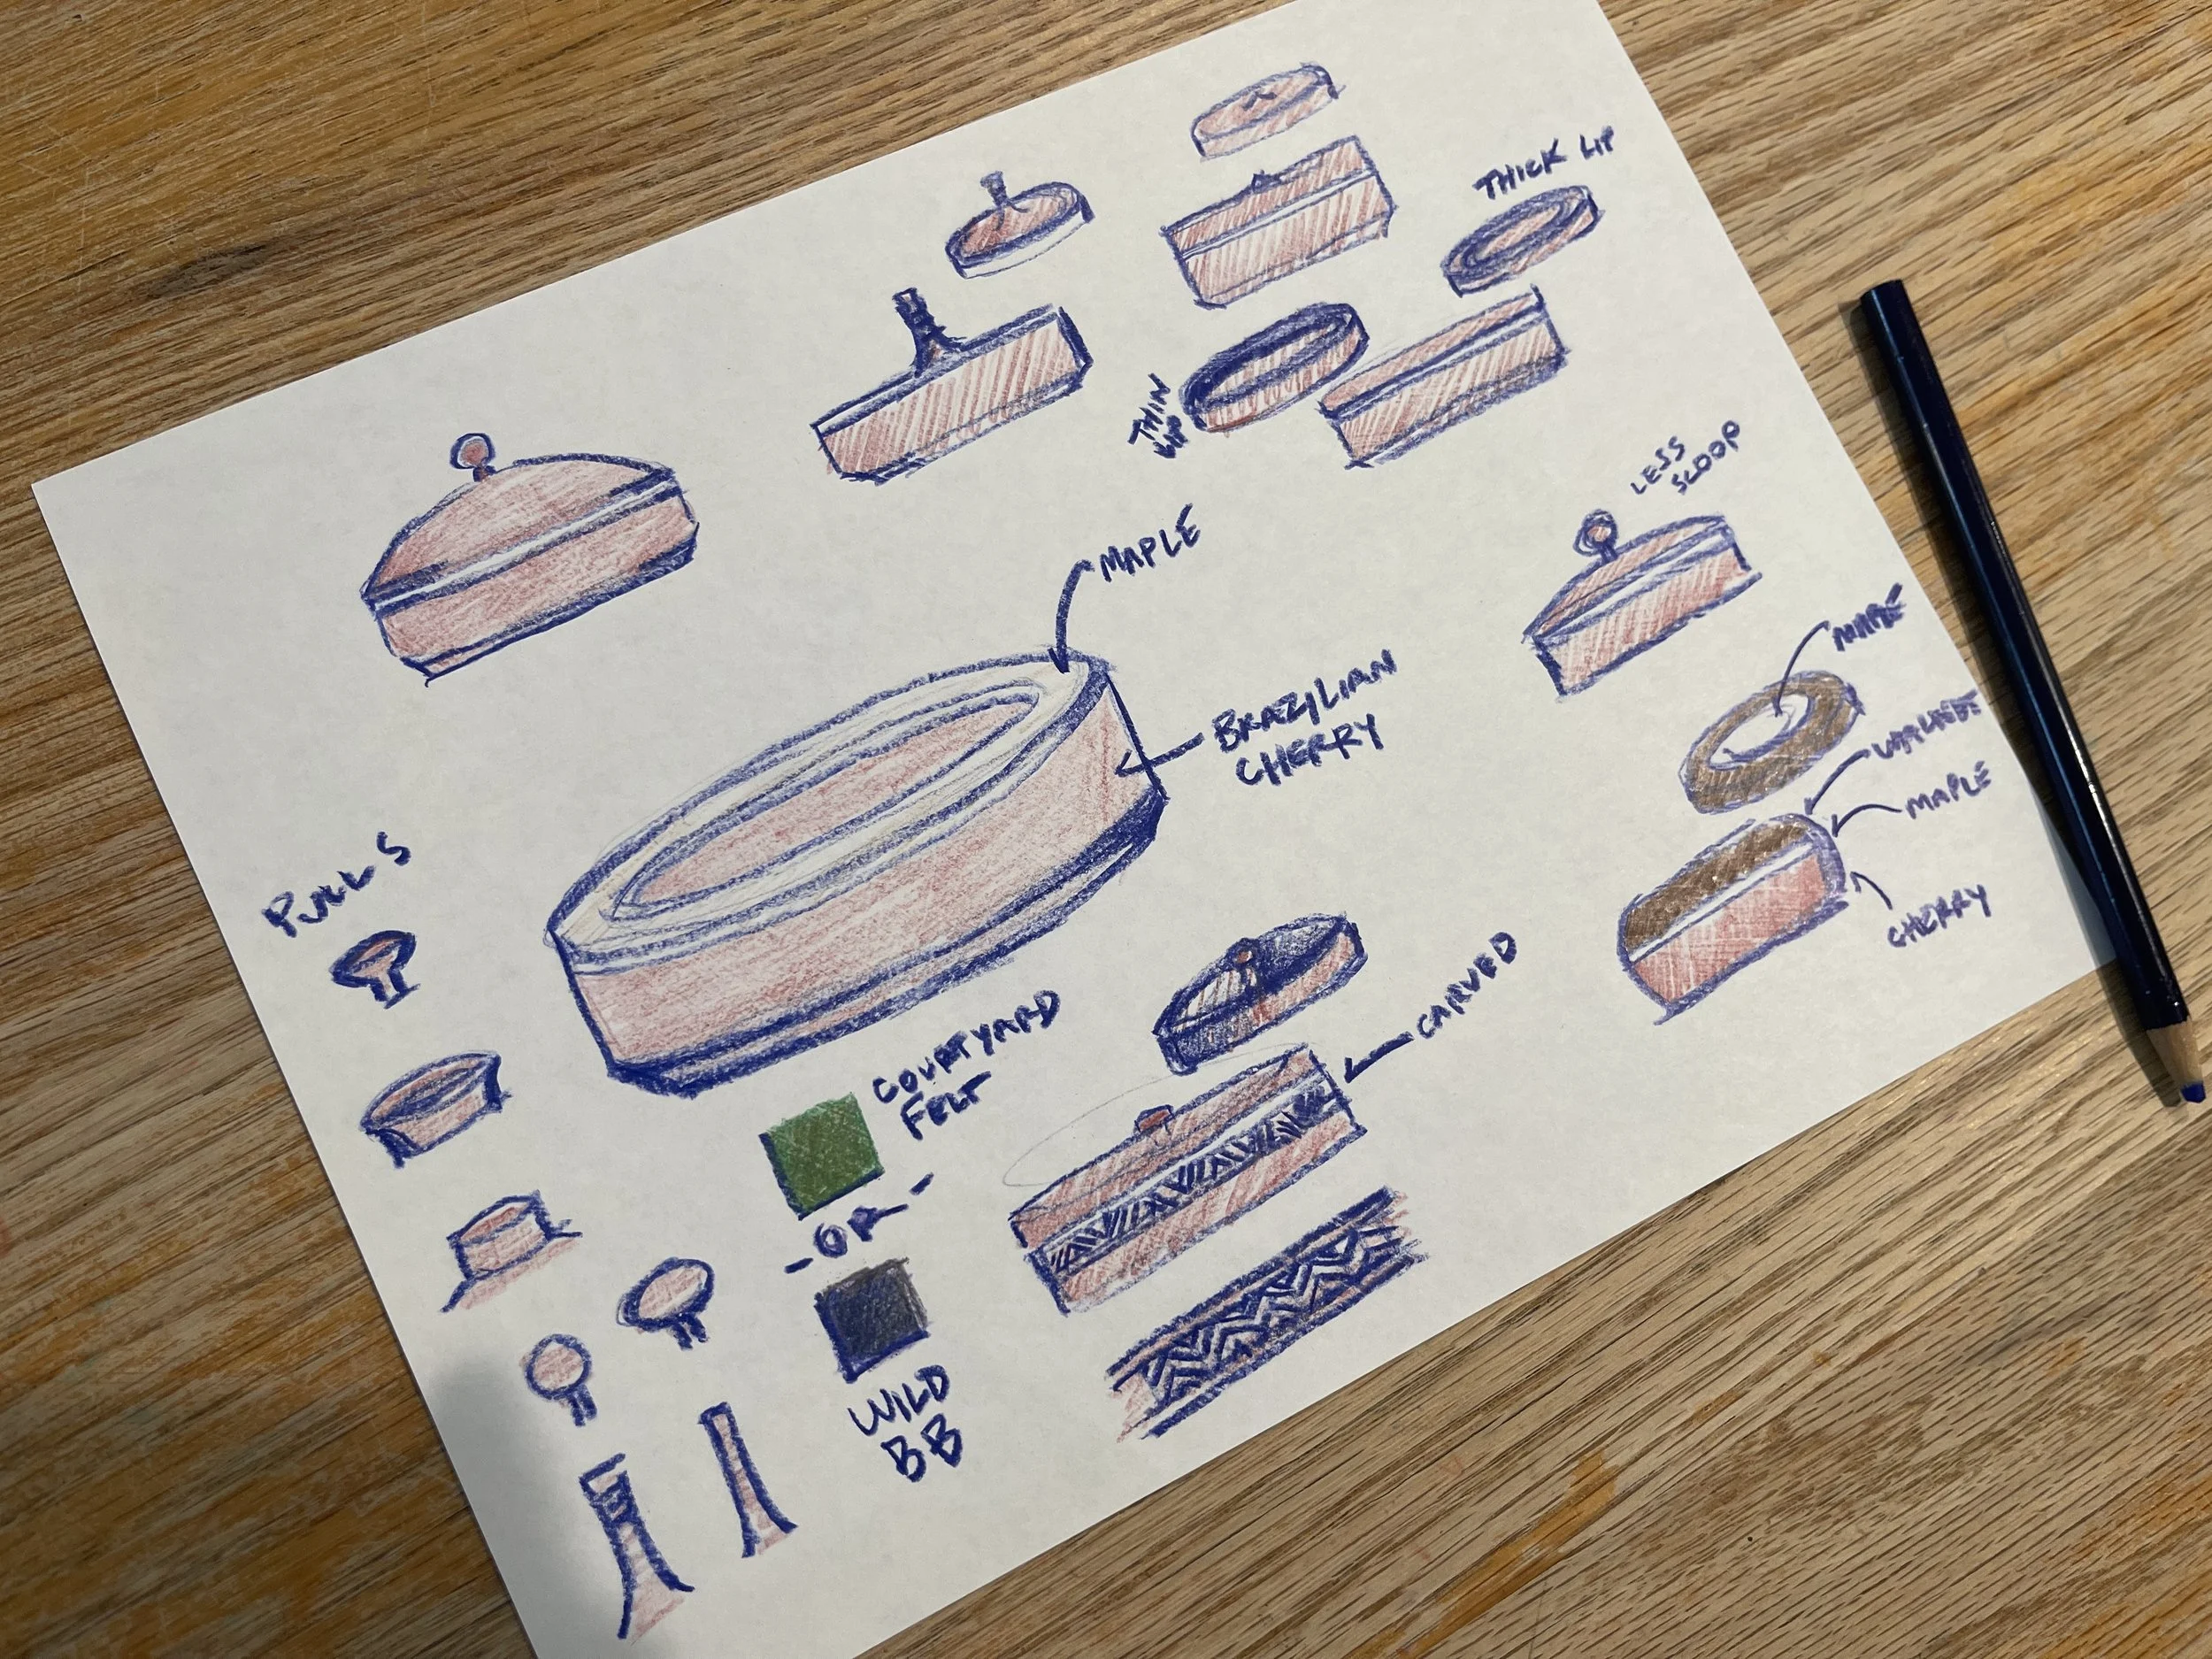 THICK LIP
THIN
LIP
LESS
SCOOP
MAPLE
BRAZILIAN
CHERRY
MAPLE
WALNUT
MAPLE
CHERRY
PULLS
CARVED
COURTYARD
FELT
-OR-
WILD
BB